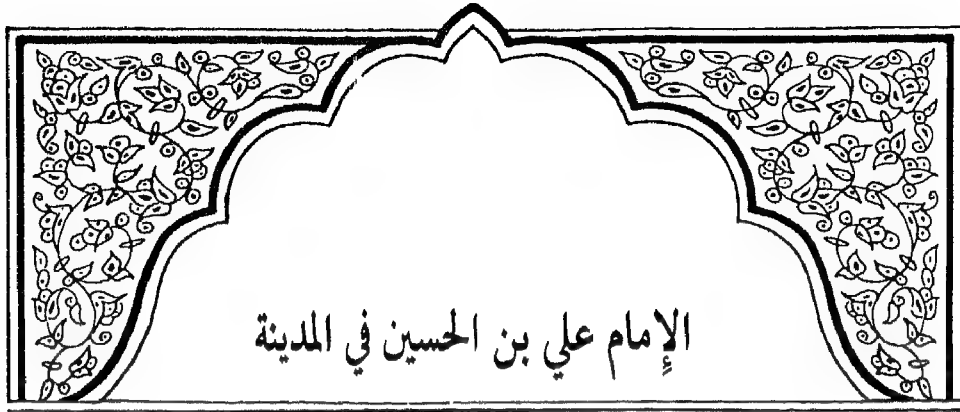 الإِمام علي بن الحسين في المدينة